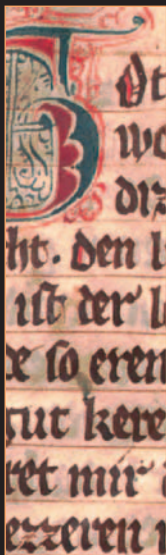 Ot
wo
diz
ht. den b
ist der b
de so eren
gut kere
ret mir
ezzeren